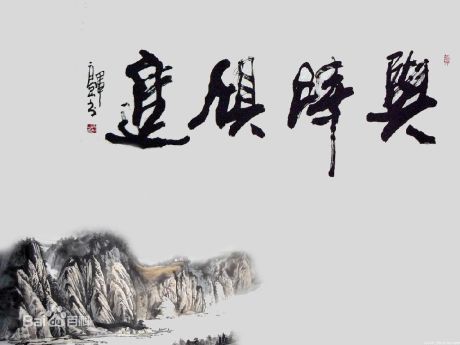 與時俱進
Bai百科